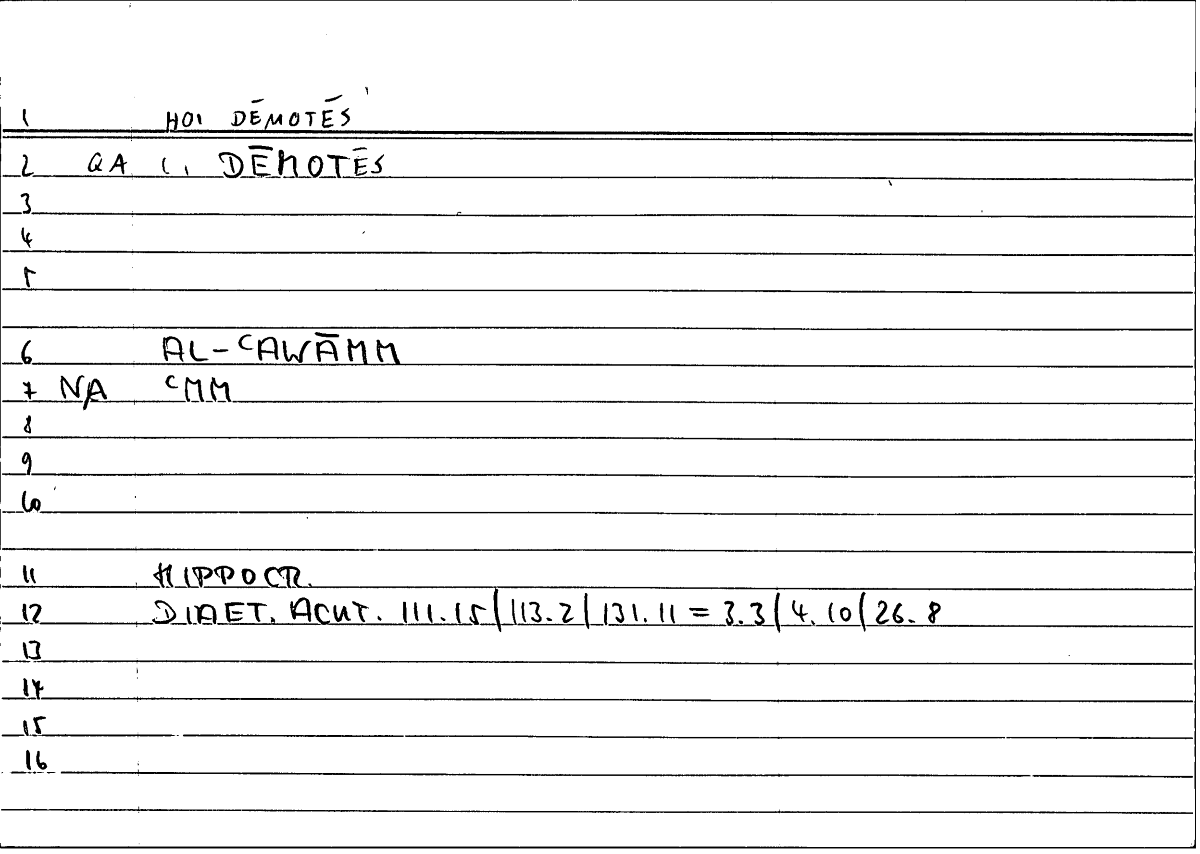 1 HOI DĒMOTĒS
2 QA (, DĒMOTĒS
3
4
5
6 AL-ʿAWĀMM
7 NA ʿMM
8
9
10
11 HIPPOCR.
12 DIAET. ACUT. 111.15/113.2/131.11 = 3.3/4.10/26.8
13
14
15
16